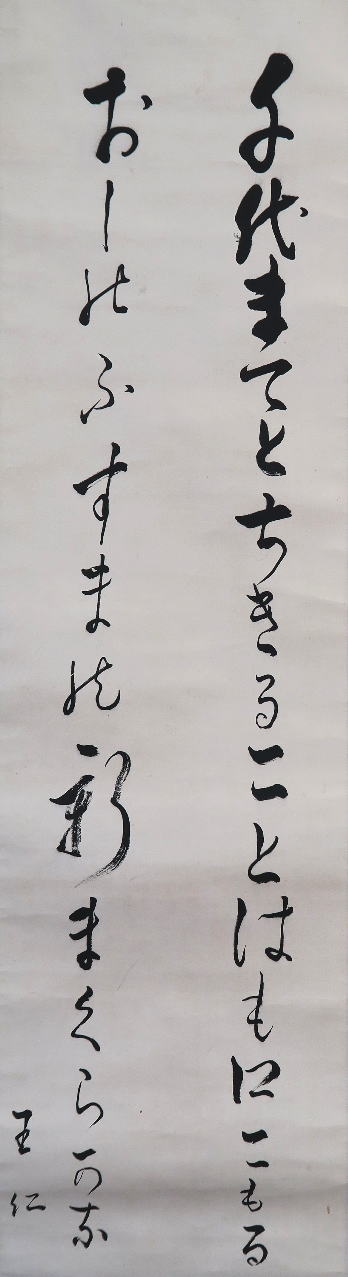 千代まてとちきることはも口こもる
おしのふすまの新まくらかな
王仁